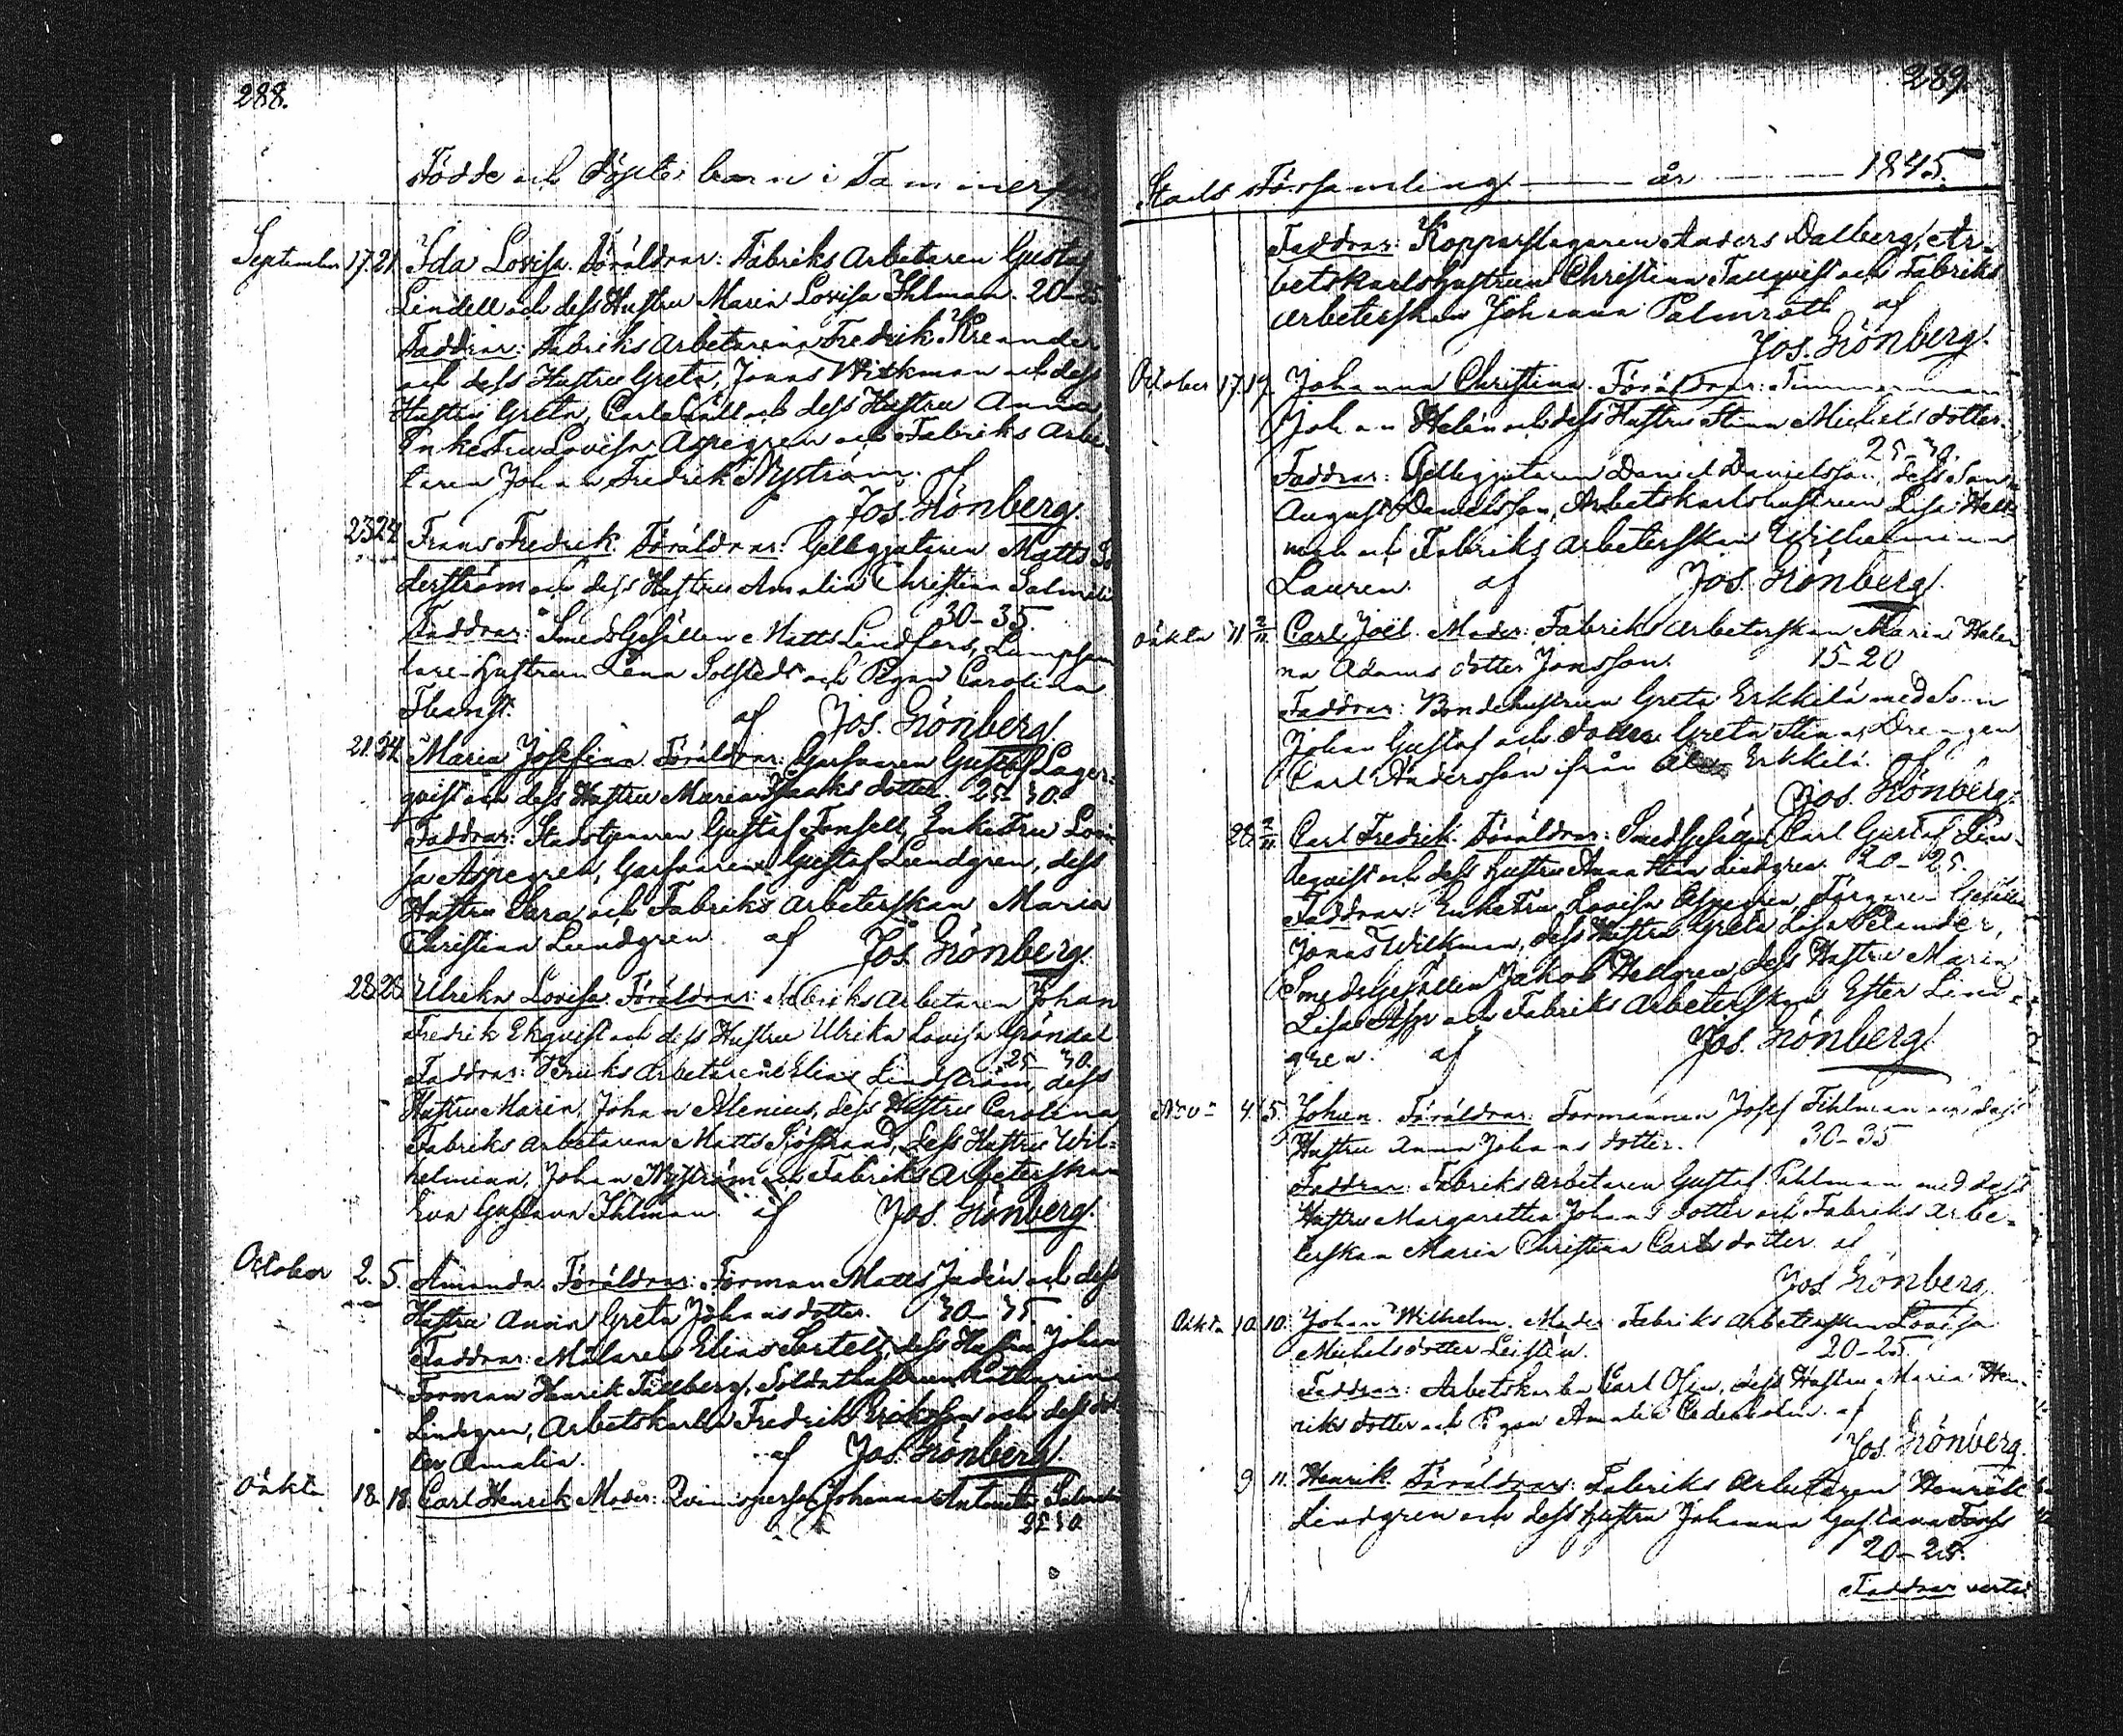 288.
Födde och Döpte barn i Tammerfors
September 17. 21. Ida Lovisa. Föräldrar: Fabriks Arbetaren Gustaf
Lindell och dess Hustru Maria Lovisa Ihlman. 20-25
Faddrar: Fabriks Arbetarena Fredrik Kreander
och dess Hustru Greta, Jonas Wikman och dess
Hustru Greta, Carl och dess Hustru Anna,
Enkefru Lovisa Aspegren och Fabriks Arbe-
taren Johan Fredrik Nyström. af
Jos. Grönberg.
23 24 Frans Fredrik. Föräldrar: Gelbgjutaren Matts Sö
derström och dess Hustru Amalia Christina Salmelin
30-35.
Faddrar: SmedsGesällen Matts Lindfors,
Hustrun Lena Solstedt och Pigan Carolina
af Jos. Grönberg.
21. 24 Maria Josefina. Föräldrar: Garfvaren Gustaf Lager-
qvist och dess Hustru Maria Isaaks dotter. 25-30.
Faddrar: Stadstjenaren Gustaf Tonsell, Enkefru Lovi
sa Aspegren, Garfvaren Gustaf Lundgren, dess
Hustru Sara, och Fabriks Arbeterskan Maria
Christina Lundgren. af Jos. Grönberg.
28. 28 Ulrika Lovisa. Föräldrar: Fabriks Arbetaren Johan
Fredrik Ekqvist och dess Hustru Ulrika Lovisa Gröndal
25 30.
Faddrar: Bruks Arbetarene Elias Lindström, dess
Hustru Maria, Johan Alenius, dess Hustru Carolina
Fabriks Arbetarena Matts Sjöstrand, dess Hustru Wil-
helmina, Johan Nyström och Fabriks Arbeterskan
Eva Gustava Ihlman. af Jos. Grönberg.
October 2. 5. Amanda. Föräldrar: Forman Matts Jadén och dess
Hustru Anna Greta Johansdotter. 30-35.
Faddrar: Målaren Elias Sertell, dess Hustru Johan
Forman Henrik Tällberg, Soldathustrun Katharina
Lindgren, Arbetskarlen Fredrik Eriksson och dess dot
ter Amalia. af Jos. Grönberg.
oäkta 18. 18. Carl Henrik. Moder: Qvinnspersen Johanna Antonetta
25 30
289.
Stads Församling år 1845.
Faddrar: Kopparslagaren Anders Dalberg, Ar-
betskarlshustrun Christina Tanqvist och Fabriks
Arbeterskan Johanna Palmroth af
Jos. Grönberg.
October 17. 19. Johanna Christina. Föräldrar: Timmerman
Johan Helén och dess Hustru Stina Michels dotter.
25-30.
Faddrar: Gelbgjutaren Daniel Danielsson, dess Son
August Danielsson, Arbetskarlshustrun Lisa Hell
man och Fabriks Arbeterskan Wilhelmina
Lauren. af Jos. Grönberg.
oäkta 31. 2/11. Carl Joël. Moder: Fabriks Arbeterskan Maria Hele
na Adams dotter Jonsson. 15-20
Faddrar: Bondehustrun Greta Erkkilä med Son
Johan Gustaf och dotter Greta Stina, Drengen
Carl Andersson ifrån Erkkilä. af
Jos. Grönberg.
28. 2/11. Carl Fredrik. Föräldrar: SmedsGesällen Carl Gustaf Lin-
deqvist och dess Hustru Anna Stina Lindgren. 20-25.
Faddrar: Enkefru Lovisa Aspegren, Färgare Gesällen
Jonas Wikman, dess Hustru Greta Lisa Selander,
SmedsGesällen Jakob Hellgren, dess Hustru Maria
Lisa Asp och Fabriks Arbeterskan Ester Lind-
gren. af Jos. Grönberg.
Nov: 4. 5. Johan. Föräldrar: Formannen Josef Fihlman och dess
Hustru Anna Johans dotter. 30-35
Faddrar: Fabriks Arbetaren Gustaf Pahlman med dess
Hustru Margaretha Johans dotter och Fabriks Arbe-
terskan Maria Christina Carls dotter. af
Jos. Grönberg.
Oäkta 10. 10. Johan Wilhelm. Moder: Fabriks Arbeterskan Lovisa
Michelsdotter Leistén. 20-25
Faddrar: Arbetskarlen Carl Ofin, dess Hustru Maria Hen-
riks dotter och Pigan Amalia Cederholm. af
Jos. Grönberg.
9 11. Henrik. Föräldrar: Fabriks Arbetaren Henrik
Lindgren och dess Hustru Johanna Gustava
20-25.
Faddrar verte